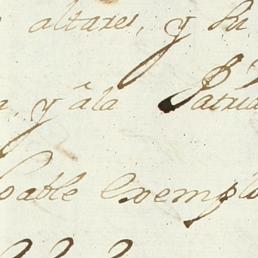 altares, y su
a, y â la Patria
oable exemplo